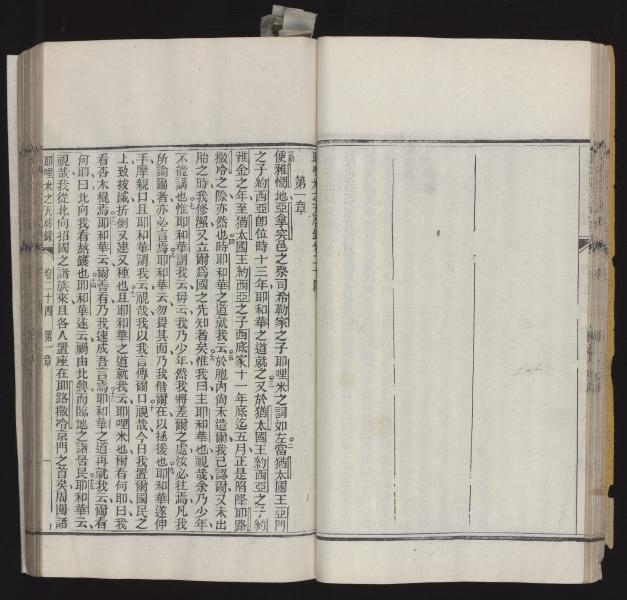 第一章
便雅憫地亞拿突邑之祭司希勒家之子耶哩米之詞如左當猶太國王亞們
之子約西亞卽位時十三年耶和華之道就之又於猶太國王約西亞之子約
雅金之年至猶太國王約西亞之子西底家十一年底迄五月正是陷降耶路
撒冷之際亦然也時耶和華之道就我云於胞內尙未造爾我已認爾又未出
胎之時我修潔又立爾爲國之先知者矣惟我曰主耶和華也視哉余乃少年
不能講也惟耶和華謂我云毋云我乃少年然我將差爾之處汝必往焉凡我
所諭爾者亦必言焉耶和華云勿畏其面乃我偕爾在以拯援也耶和華遂伸
手摩親口且耶和華謂我云視哉我以我言傳爾口視哉今日我置爾國民之
上致拔滅折倒又建又種也且耶和華之道就我云耶哩米也爾看何耶曰我
看杏木棍焉耶和華云爾善看乃我速成吾言焉耶和華之道再就我云爾看
何耶曰北向我看熬鑊也耶和華遂云禍由北興而臨地之諸居民耶和華云
視哉我從北向招國之諸族來且各人置座在耶路撒冷京門之首矣周圍諸
耶哩米之天啓錄 卷二十四 第一章 一